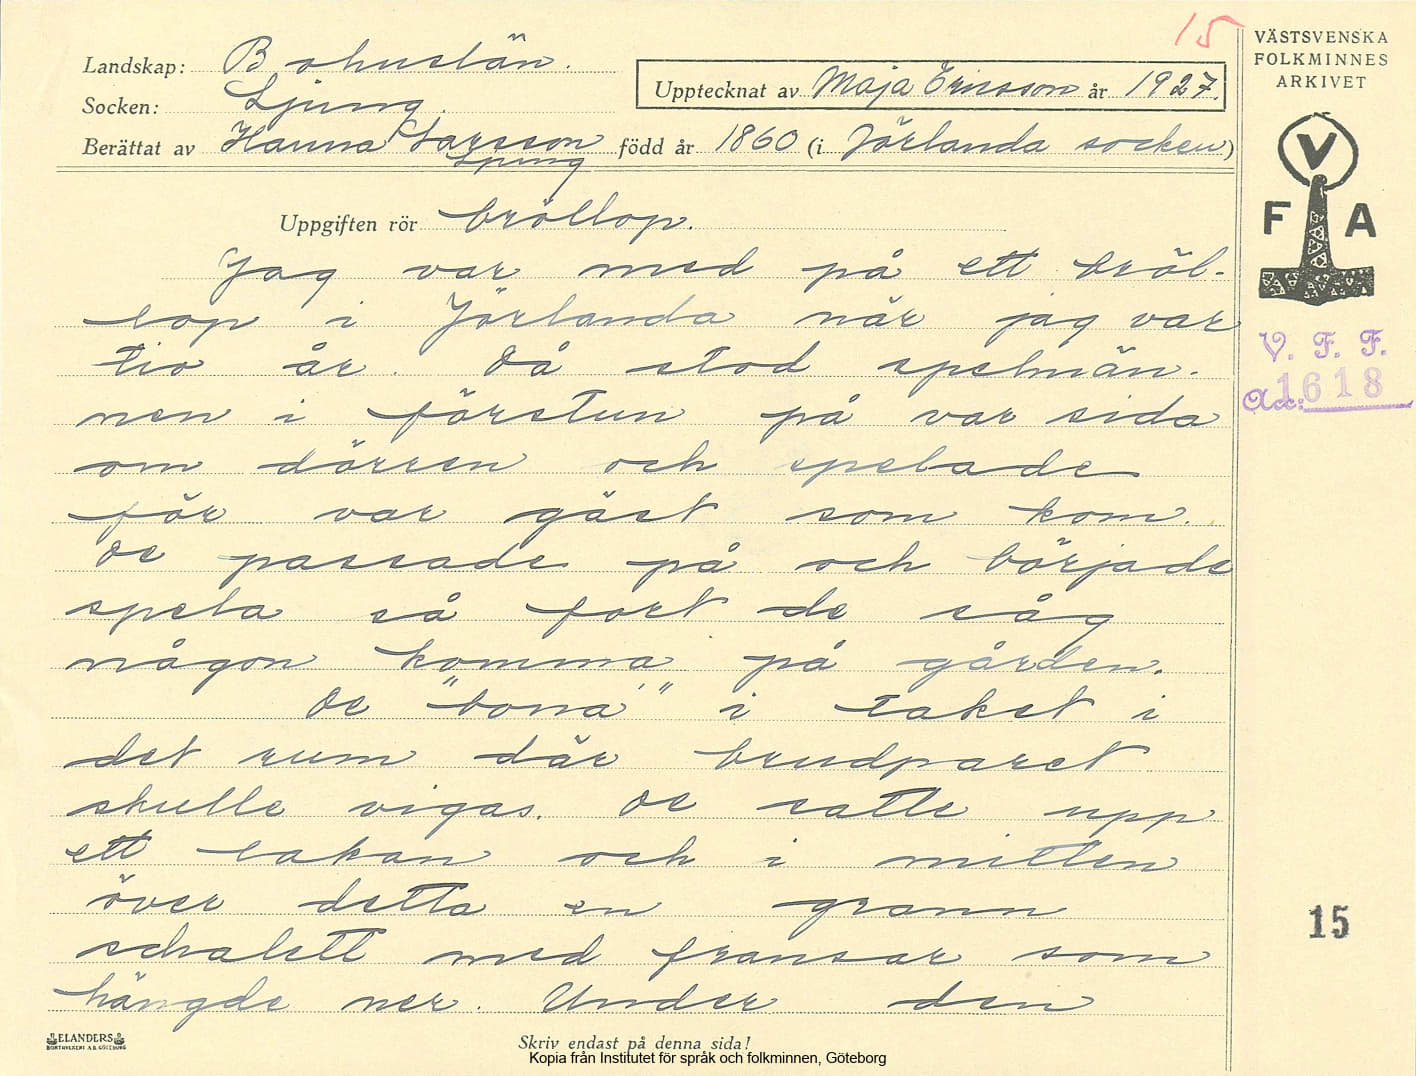 15
VÄSTSVENSKA
FOLKMINNES
ARKIVET
Landskap: Bohuslän.
Socken: Ljung.
Upptecknat av Maja Ericsson år 1927.
Berättat av Hanna Larsson född år 1860 (i Jörlanda socken)
Ljung
V
F A
V. F. F.
Acc: 1618
Uppgiften rör bröllop.
Jag var med på ett bröl-
lop i Jörlanda när jag var
tio år. Då stod spelmän-
nen i förstun på var sida
om dörren och spelade
för var gäst som kom.
De passade på och började
spela så fort de såg
någon komma på gården.
De "bona" i taket i
det rum där brudparet
skulle vigas. De satte upp
ett lakan och i mitten
över detta en grann
schalett med fransar som
hängde ner. Under den
15
ELANDERS
BOKTRYCKERI A.B. GÖTEBORG
Skriv endast på denna sida!
Kopia från Institutet för språk och folkminnen, Göteborg